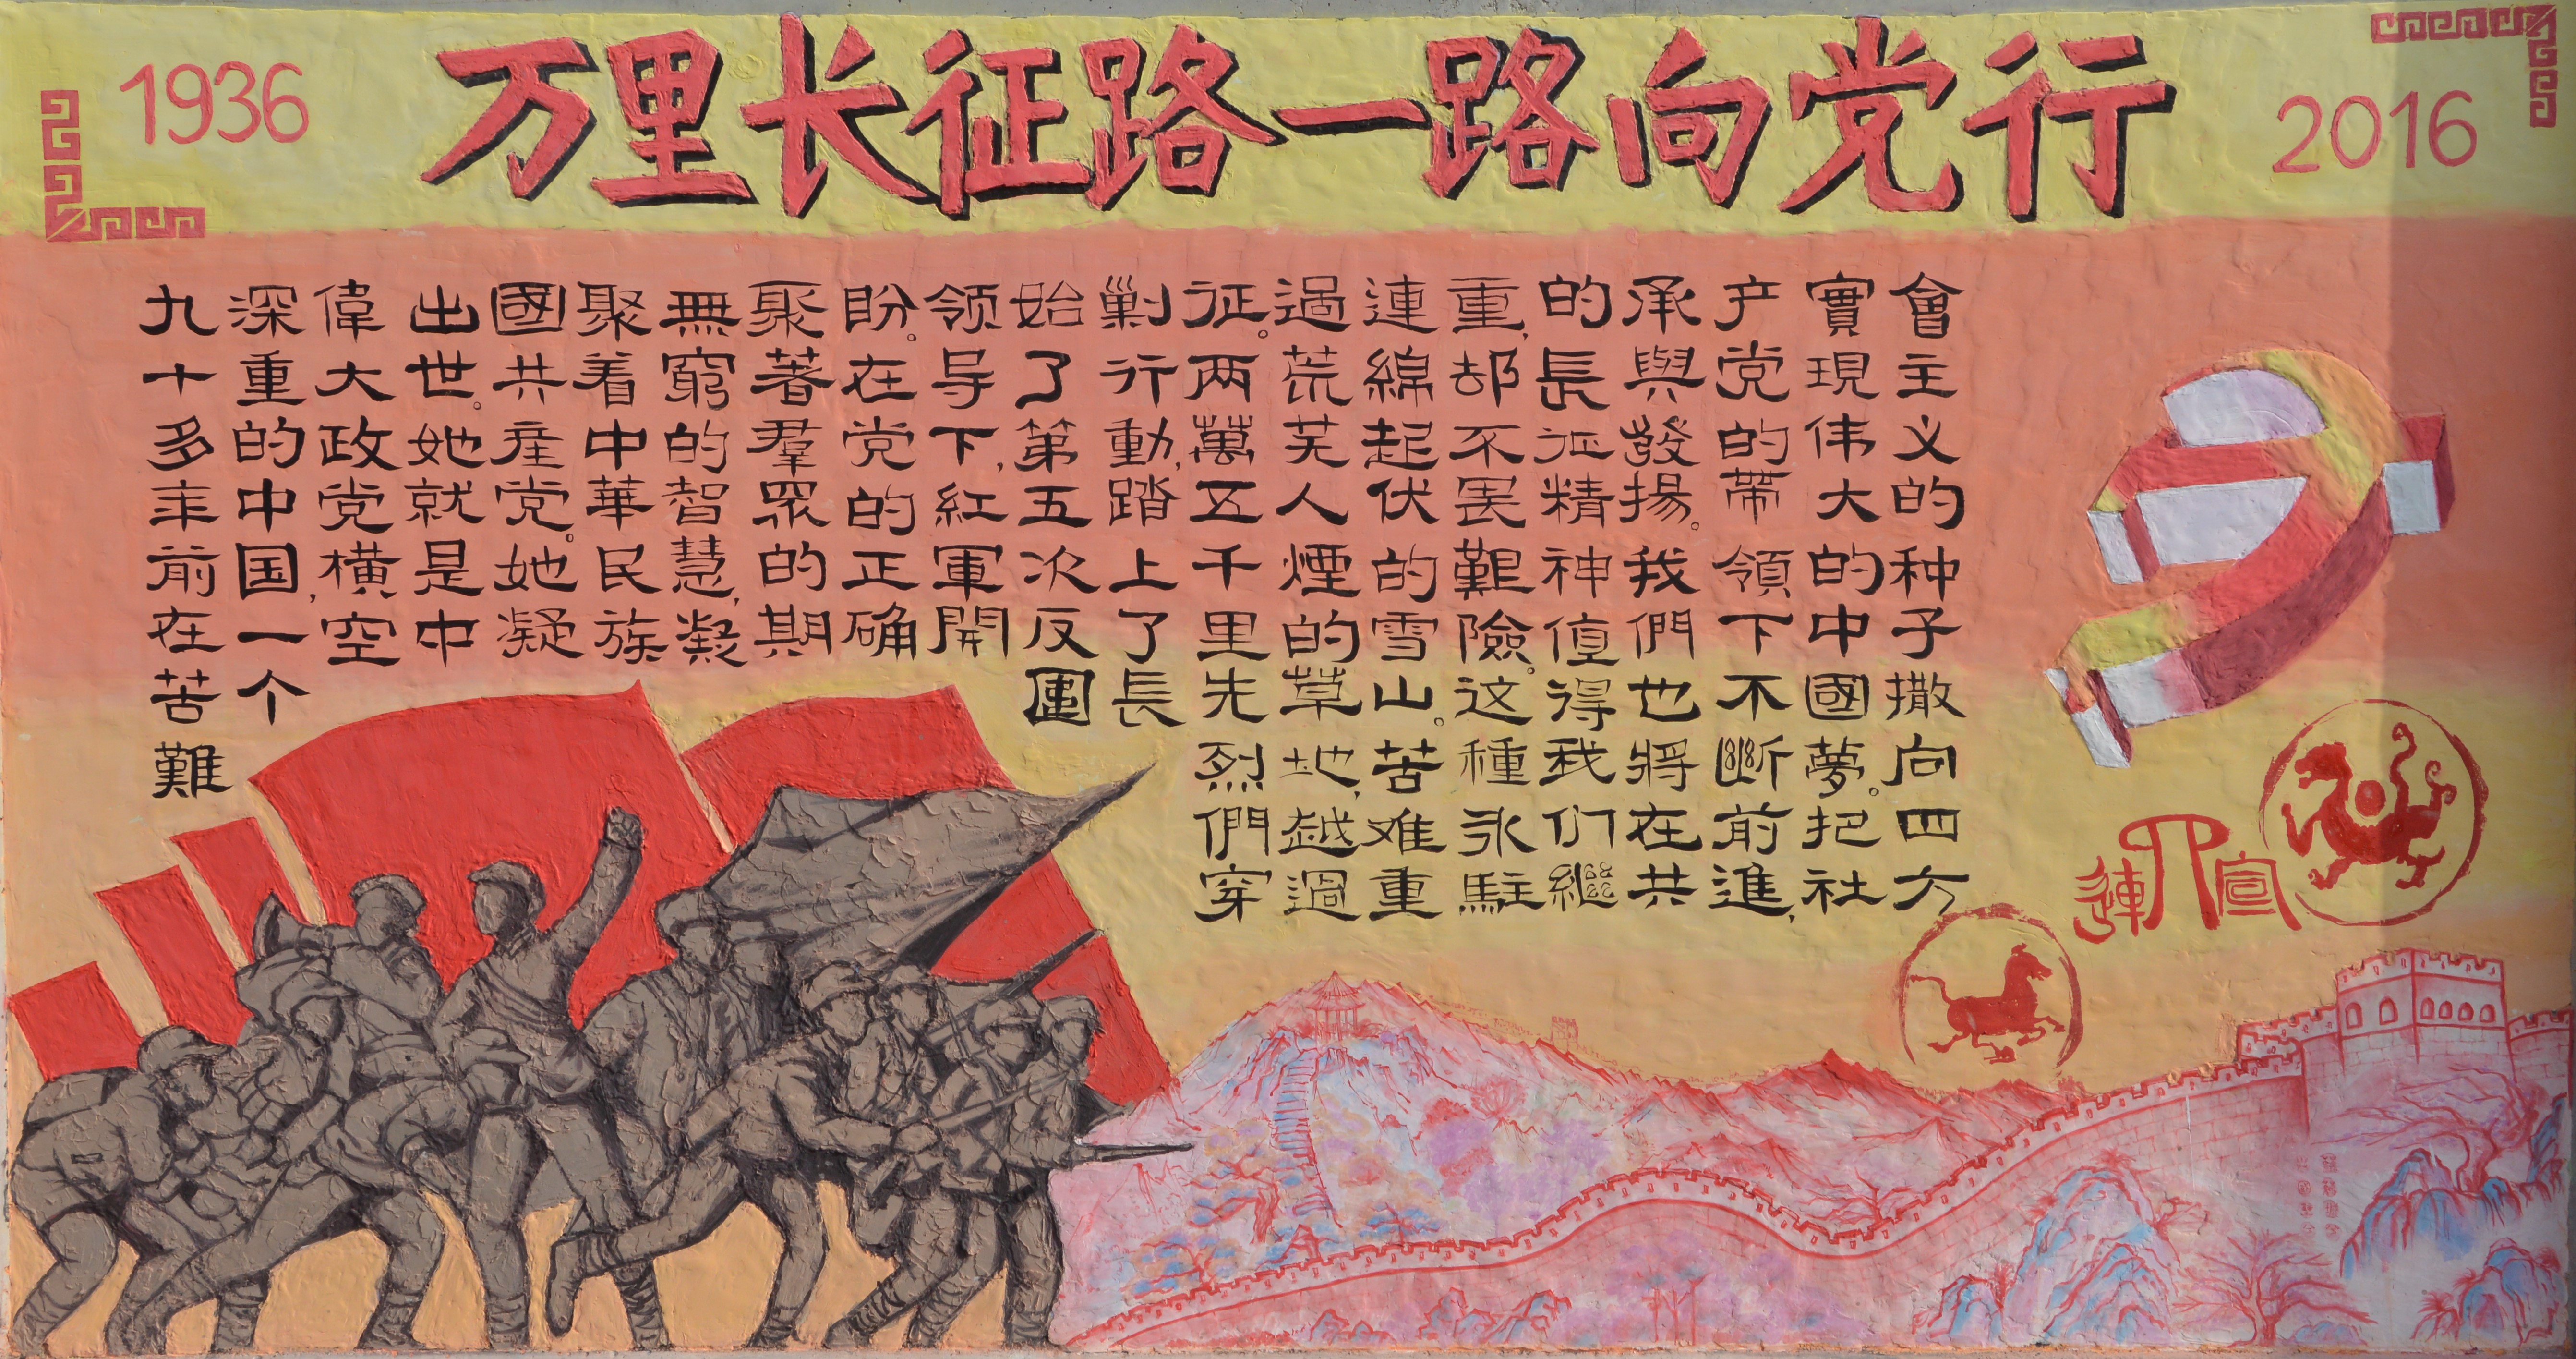 1936
万里长征路一路向党行
2016
九十多年前在苦難
深重的中国,一个
偉大政党横空
出世。她就是中
國共産党。她凝
聚着中華民族
無窮的智慧,凝
聚著羣眾的期
盼。在党的正确
领导下,紅軍開
始了第五次反圍
剿行動,踏上了長
征。两萬五千里先烈們穿
過荒芜人煙的草地,越過
連綿起伏的雪山。苦难重
重,却不畏艱險。这種永駐
的長征精神值得我们繼
承與發揚。我們也將在共
产党的带領下不斷前進,
實現伟大的中國夢。把社
會主义的种子撒向四方
連 宣